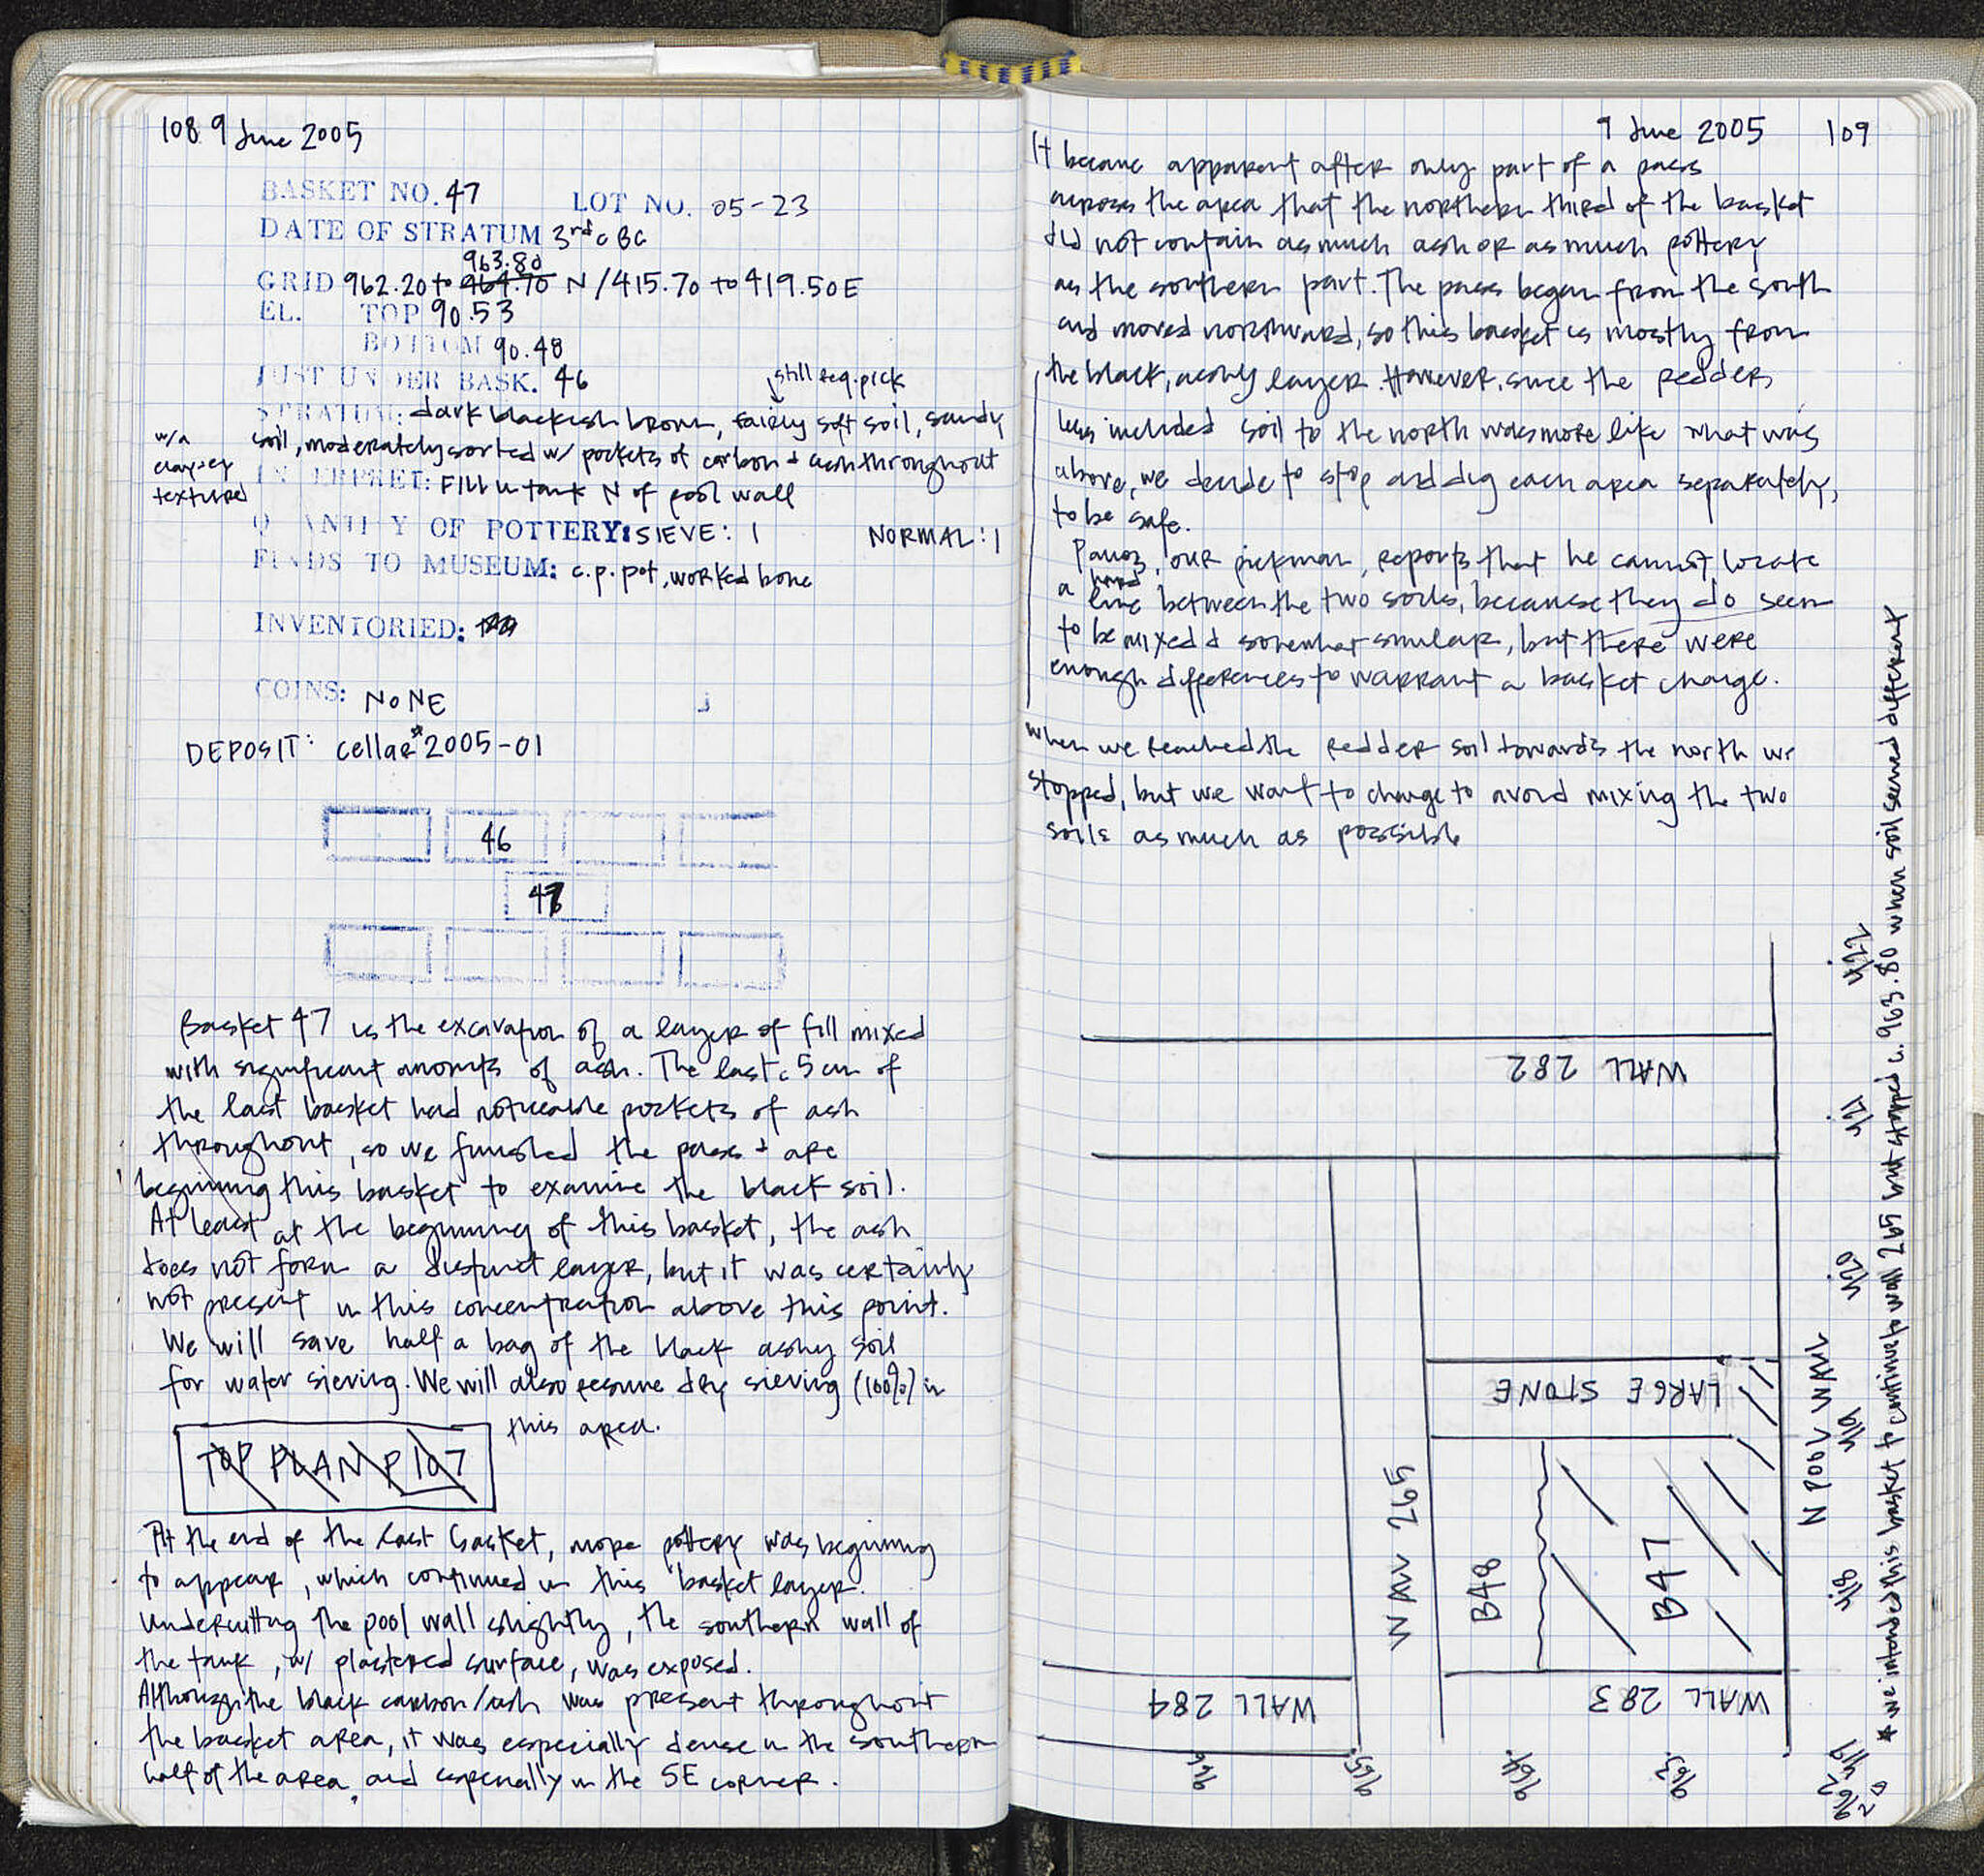 108 9 June 2005
BASKET NO. 47 LOT NO. 05-23
DATE OF STRATUM 3rd c BC
963.80
GRID 962.20 to 964.70 N / 415.70 to 419.50 E
EL. TOP 90.53
BOTTOM 90.48
JUST UNDER BASK. 46
still req. pick
STRATUM: dark blackish brown, fairly soft soil, sandy
w/a clayey texture
soil, moderately sorted w/ pockets of carbon & ash throughout
INTERPRET: Fill in tank N of pool wall
QUANTITY OF POTTERY: SIEVE: 1 NORMAL: 1
FINDS TO MUSEUM: c.p. pot, worked bone
INVENTORIED:
COINS: NONE
DEPOSIT: cellar* 2005-01
46
47
Basket 47 is the excavation of a layer of fill mixed
with significant amounts of ash. The last c. 5 cm of
the last basket had noticeable pockets of ash
throughout, so we finished the pass & are
beginning this basket to examine the black soil.
At least at the beginning of this basket, the ash
does not form a distinct layer, but it was certainly
not present in this concentration above this point.
We will save half a bag of the black ashy soil
for water sieving. We will also resume dry sieving (100%) in
this area.
TOP PLAN P 107
At the end of the last basket, more pottery was beginning
to appear, which continued in this basket layer.
Undercutting the pool wall slightly, the southern wall of
the tank, w/ plastered surface, was exposed.
Although the black carbon/ash was present throughout
the basket area, it was especially dense in the southern
half of the area, and especially in the SE corner.
9 June 2005 109
It became apparent after only part of a pass
across the area that the northern third of the basket
did not contain as much ash or as much pottery
as the southern part. The pass began from the south
and moved northward, so this basket is mostly from
the black, ashy layer. However, since the redder,
less included soil to the north was more like what was
above, we decide to stop and dig each area separately,
to be safe.
Panos, our pickman, reports that he cannot locate
a hard line between the two soils, because they do seem
to be mixed & somewhat similar, but there were
enough differences to warrant a basket change.
When we reached the redder soil towards the north we
stopped, but we want to change to avoid mixing the two
soils as much as possible
WALL 282
LARGE STONE
WALL 265
B48
B47
N POOL WALL
WALL 284
WALL 283
422
421
420
419
418
417
966
965
964
963
962
* we intended this basket to continue to wall 265 but stopped c. 963.80 when soil seemed different